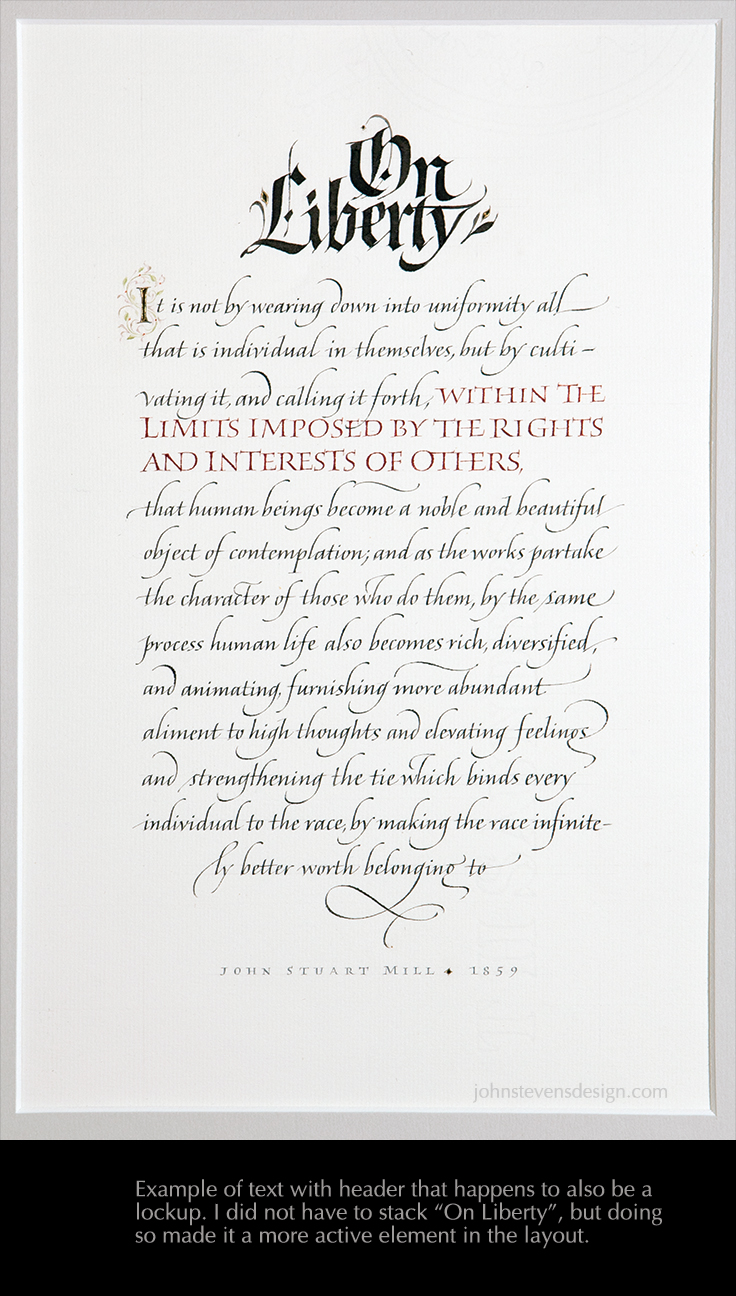 On
Liberty
It is not by wearing down into uniformity all
that is individual in themselves, but by culti-
vating it, and calling it forth, WITHIN THE
LIMITS IMPOSED BY THE RIGHTS
AND INTERESTS OF OTHERS,
that human beings become a noble and beautiful
object of contemplation; and as the works partake
the character of those who do them, by the same
process human life also becomes rich, diversified,
and animating, furnishing more abundant
aliment to high thoughts and elevating feelings
and strengthening the tie which binds every
individual to the race, by making the race infinite-
ly better worth belonging to
JOHN STUART MILL ✦ 1859
johnstevensdesign.com
Example of text with header that happens to also be a
lockup. I did not have to stack “On Liberty”, but doing
so made it a more active element in the layout.